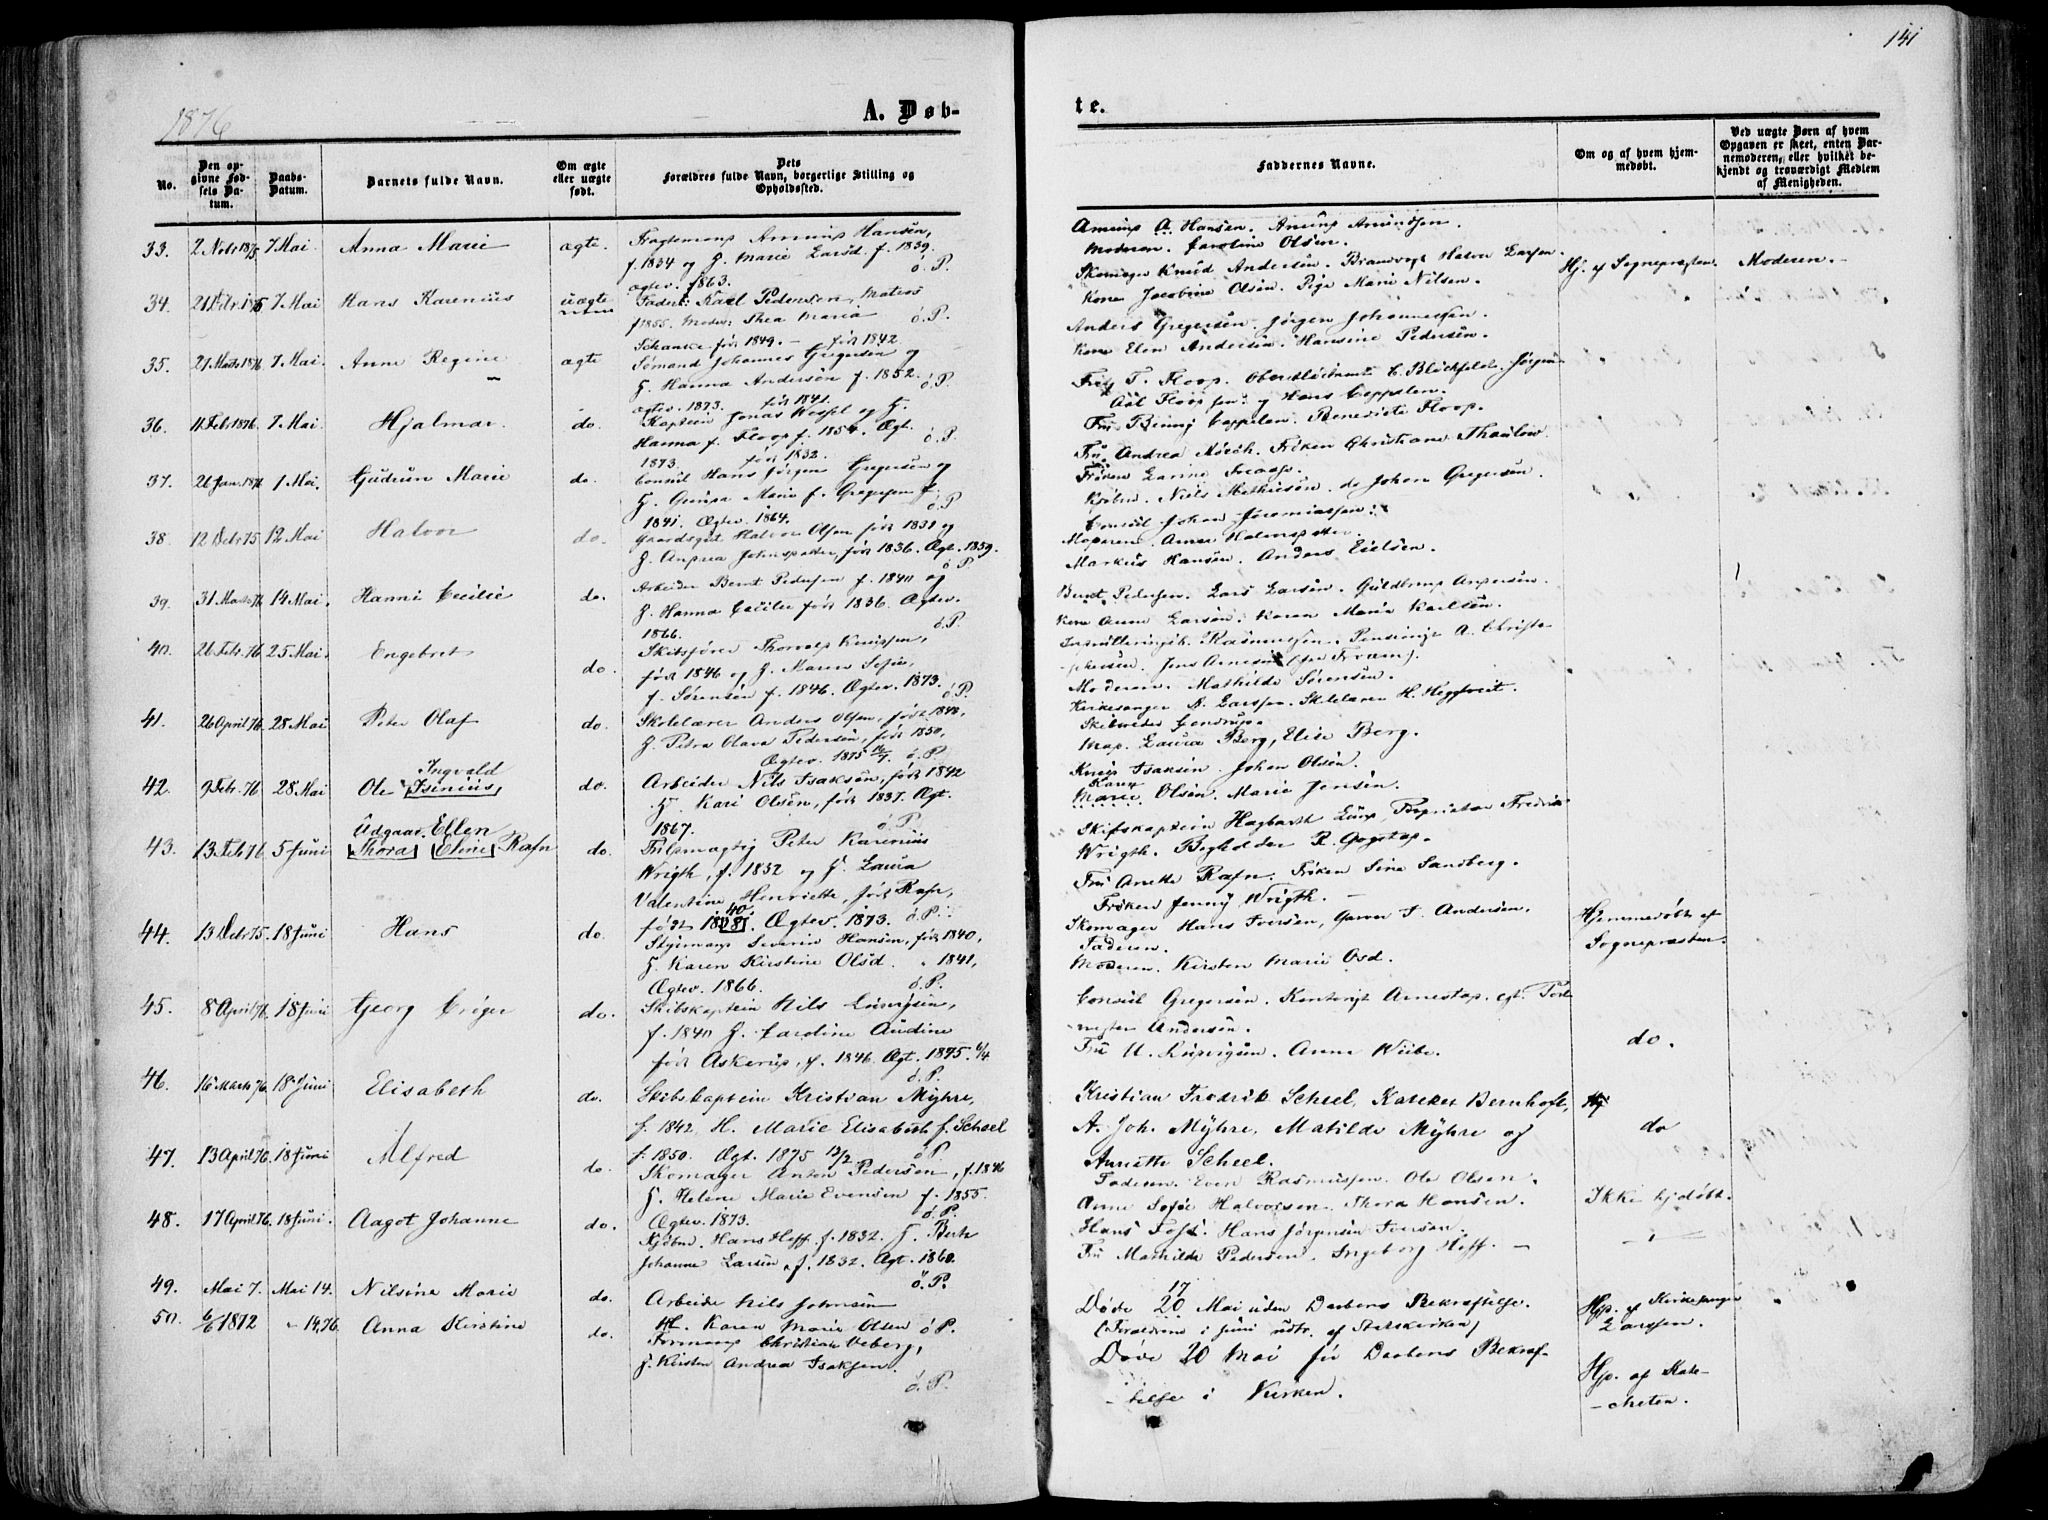 141
1876
A. Døb-
te.
No.
Den op-
givne Fød-
sels Da-
tum.
Daabs-
Datum.
Barnets fulde Navn.
Om ægte
eller uægte
født.
Dets
Forældres fulde Navn, borgerlige Stilling og
Opholdssted.
Faddernes Navne.
Om og af hvem hjem-
medøbt.
Ved uægte Børn af hvem
Opgaven er skeet, enten Bar-
nemoderen, eller hvilket be-
kjendt og troværdigt Medlem
af Menigheden.
33. 2 Novbr 1875 7 Mai Anna Marie ægte.
Hansen,
f. 1834 og H. Marie Larsd. f. 1839.
ægtev. 1863. ö.P.
A. Hansen.
Moderen. Caroline Olsen.
34. 7 Mai Hans Karenius uægte
Fader: Karl Pedersen, Matros
f 1855. Moder: Thea Maria
Schanke før 1849. ö.P.
Skomager Knud Andersen. Halvor Larsen.
Kone Jacobine Olsen. Pige Marie Nilsen.
Hj. af Sognepræsten. Moderen.
35. 21 Marts 1876 7 Mai. Anne Regine ægte
født 1842
Sømand Johannes Gregersen og
H. Hanna Andersen f. 1852.
ægtev. 1873. ö.P.
Anders Gregersen. Jørgen Johannessen.
Kone Elen Andersen. Hansine Pedersen.
36. 11 Febr 1876 7 Mai. Hjalmar do.
født 1841.
Kaptein Jonas Wessel og H.
Hanna f. Floop f. 1854. Ægt.
1873. ö.P.
T. Floop. C. Blichfeldt. Jørgen
og Hans Cappelen.
Fru Binny Cappelen. Benedicte Floop.
37. 26 Jan. 1876 1 Mai. Gudrun Marie do.
født 1832.
Consul Hans Jørgen Gregersen og
H. Marie f. Gregersen f.
1841. Ægtev. 1864. ö.P.
Fru Andrea. Frøken Christiane Thaulow.
Frøken Larine
Kjøbm. Niels Mathiesen. do Johan Gregersen.
Consul Johan Jeremiassen.
38. 12 Debr 75 12 Mai Halvor do.
Gaardsgut Halvor Olsen født 1831 og
H. Andrea født 1836. Ægt. 1859.
ö.P.
Moderen. Anne
Markus Hansen. Anders Eielsen.
39. 31 Marts 76 14 Mai. Hanne Cecilie do.
Arbeider Bernt Pedersen f. 1840 og
H. Hanna Cecilie født 1836. Ægtev.
1866. ö.P.
Bernt Pedersen. Lars Larsen. Andersen.
Kone Anne Larsen. Karen Marie Karlsen.
40. 26 Febr. 76 25 Mai. Engebret do.
Skibsfører Thorvald Knudsen,
født 1846 og H. Maren Sofie,
f. Sørensen f. 1846. Ægtev. 1873.
ö.P.
Rasmussen. A. Christo-
phersen. Jens Arnesen
Moderen. Mathilde Sørensen.
41. 26 April 76. 28 Mai Peter Olaf do.
Skolelærer Anders Olsen, født 1848,
H. Petra Olava Pedersen, født 1850,
Ægtev. 1875 ö.P.
Kirkesanger Larssen. Skolelærer H. Heggtveit.
Laura Berg, Elise Berg.
42. 9 Febr. 76 28 Mai Ole Isinius, Ingvald do.
Arbeider Nils Isaksen, født 1842
H. Kari Olsen, født 1837. Ægt.
1867. ö.P.
Knud Isaksen. Johan Olsen.
Karen
Marie Olsen. Marie Jensen.
43. 13 Feb 76 5 Juni Udgaar. Ellen
Thora Eline Rafn do.
Peter Karenius
Wrigth, f. 1832 og H. Laura
Valentine Henriette, født Rafn,
født 1848. 40. Ægtev. 1873. ö.P.
Skibskaptein Hagbarth Lund, Proprietær Fredrik
Wrigth. R. Gogstad.
Fru Anette Rafn. Frøken Sina Sandberg.
Frøken Jenny Wrigth.
44. 13 Debr 75. 18 Juni Hans do.
Styrmand Severin Hansen, født 1840,
H. Karen Kirstine Olsd. " 1841,
Ægtev. 1866. ö.P.
Skomager Hans Iversen, Garver T. Andersen.
Faderen.
Moderen. Kirsten Marie Osd.
Hjemmedøbt af
Sognepræsten.
45. 8 April 76. 18 Juni Georg Crøger do.
Skibskaptein Nils Ludvigsen,
f. 1840 H. Caroline Audine
født Askerup, f. 1846. Ægt. 1875. 6/4.
ö.P.
Consul Gregersen. Kontorist Arnestad.
Andersen.
Fru U. Ludvigsen. Anna Wiibe.
do.
46. 16 Marts 76. 18 Juni Elisabeth do.
Skibskaptein Kristian Myhre,
f. 1842. H. Marie Elisabeth f. Scheel
f. 1850. Ægt. 1875 13/2 ö.P.
Kristian Fredrik Scheel, Kateket Bernhoft,
A. Joh. Myhre, Matilde Myhre og
Annette Scheel.
Hj
do
47. 13 April 76. 18 Juni Alfred do.
Skomager Anton Pedersen, f. 1846
H. Helene Marie Evensen f. 1855.
Ægtev. 1873. ö.P.
Faderen. Even Rasmussen. Ole Olsen.
Anne Sofie Halvorsen. Thora Hansen.
Ikke hjdøbt.
48. 17 April 76. 18 Juni. Aagot Johanne do.
Kjøbmd. Hans Hoff. f. 1832. H. Berte
Johanne Larsen, f. 1832. Ægt. 1860.
ö.P.
Hans Foss. Hans Jørgensen Iversen.
Fru Mathilde Pedersen. Ingeborg Hoff.
49. Mai 7. Mai 14. Nilsine Marie do.
Arbeider Nils Johnsen
H. Karen Marie Olsen ö P.
17
Døde 20 Mai uden Daabens Bekræftelse.
(Forældrene i Juni udtr. af Statskirken)
Hjd. af Kirkesanger
Larssen.
50. 6/6 1872 " 14, 76. Anna Kirstine do.
Formand Christian Veberg,
H. Kirsten Andrea Isaksen.
ö.P.
Døde 20 Mai før Daabens Bekræf-
telse i Kirken.
Hjd. af Kate-
cheten.